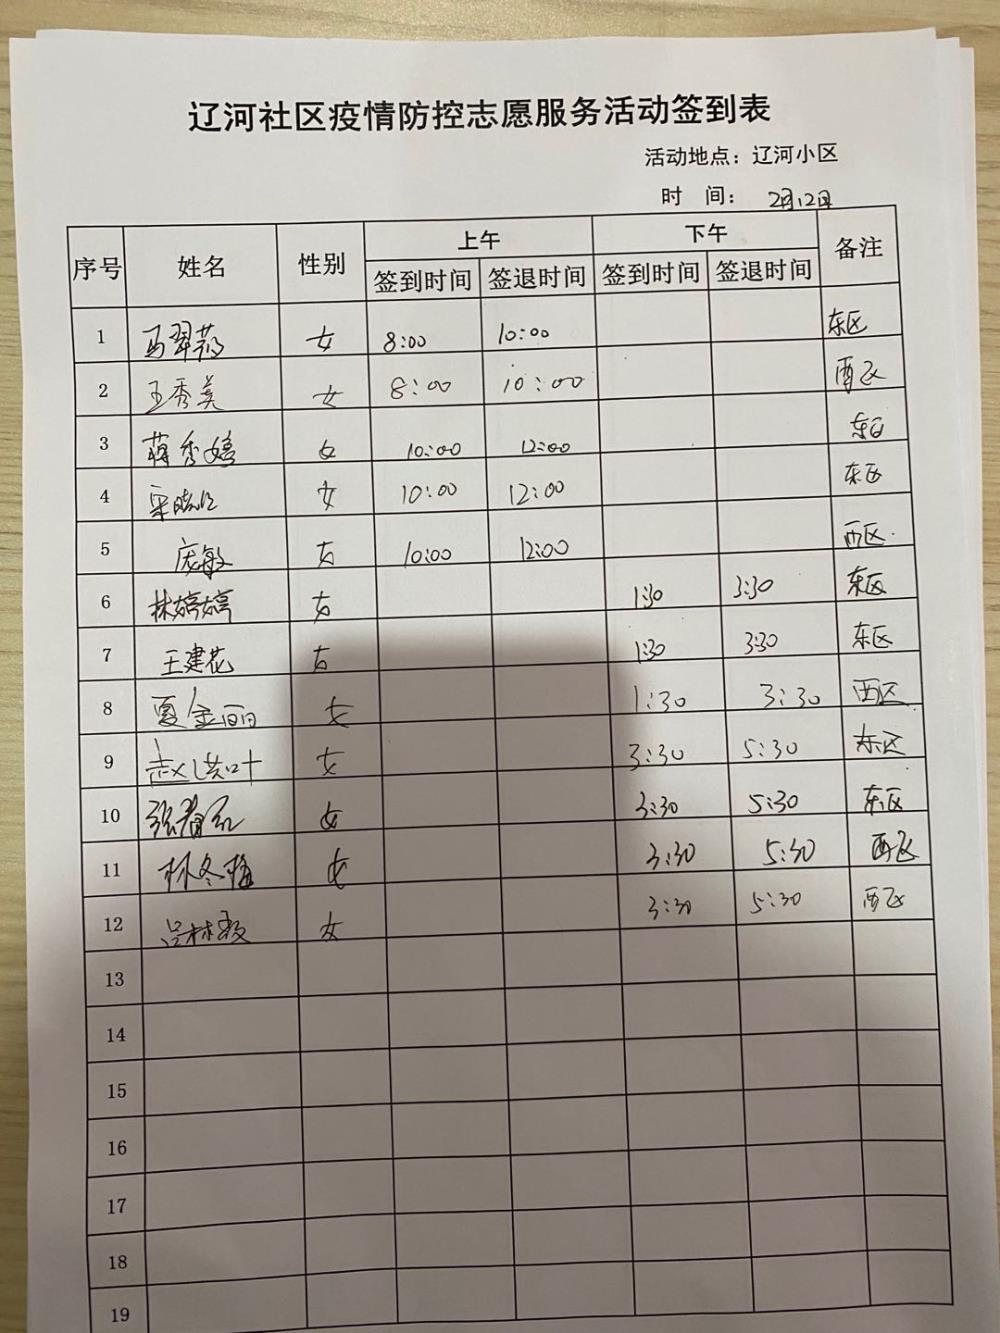 辽河社区疫情防控志愿服务活动签到表
活动地点：辽河小区
时 间：2月12日
序号 姓名 性别 上午 下午 备注
签到时间 签退时间 签到时间 签退时间
1 马翠 女 8:00 10:00 东区
2 王秀英 女 8:00 10:00 西区
3 蒋秀婷 女 10:00 12:00 东区
4 梁晓 女 10:00 12:00 东区
5 庞敏 女 10:00 12:00 西区
6 林婷婷 女 1:30 3:30 东区
7 王建花 女 1:30 3:30 东区
8 夏金丽 女 1:30 3:30 西区
9 赵洪叶 女 3:30 5:30 东区
10 张春红 女 3:30 5:30 东区
11 林冬梅 女 3:30 5:30 西区
12 吕林 女 3:30 5:30 西区
13
14
15
16
17
18
19